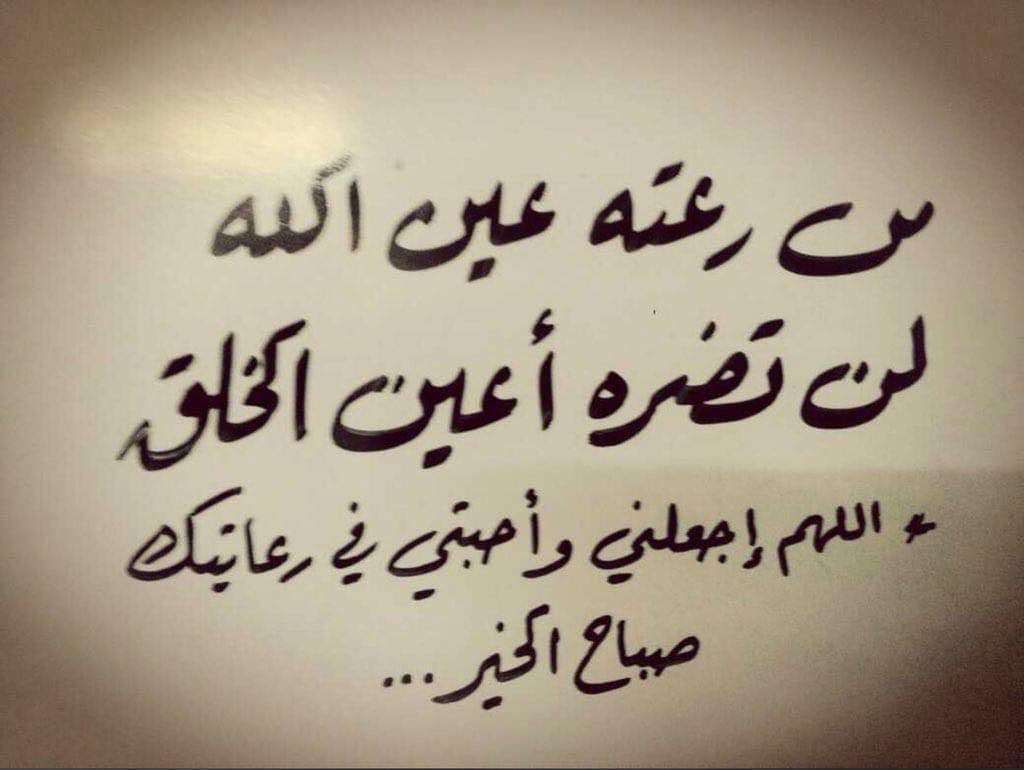 من رعته عين الله
لن تضره أعين الخلق
* اللهم إجعلني وأحبتي في رعايتك
صباح الخير ...